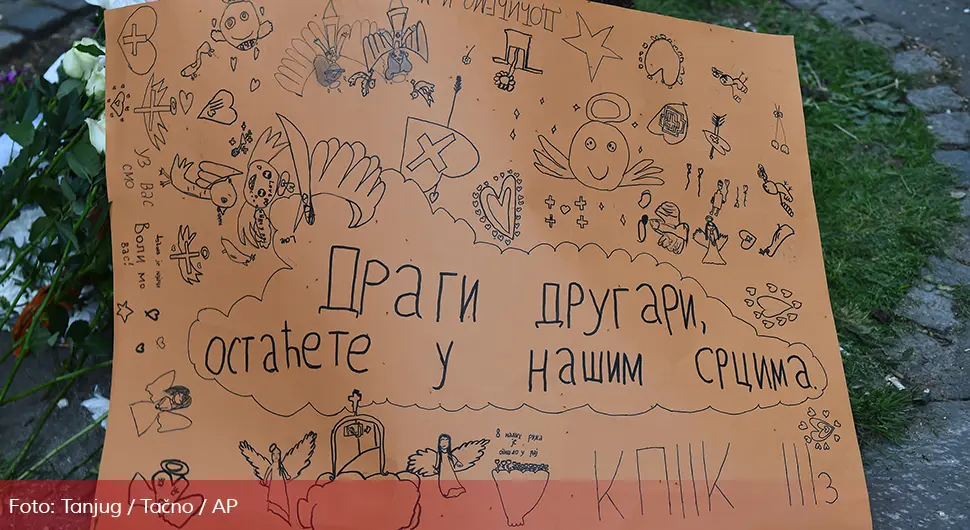 УЗ ВАС
СМО
ВОЛИ МО
ВАС!
ДРАГИ ДРУГАРИ,
ОСТАЋЕТЕ У НАШИМ СРЦИМА.
КПК III3
Foto: Tanjug / Tačno / AP